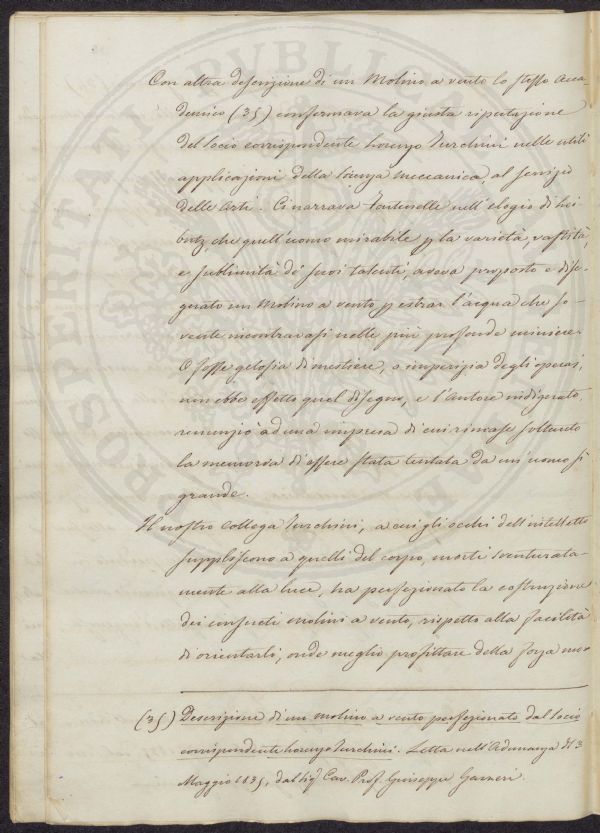 Con altra descrizione di un Molino a vento lo stesso Acca-
demico (35) confermava la giusta riputazione
del Socio corrispondente Lorenzo Turchini nelle utili
applicazioni della Scienza meccanica, al servizio
delle Arti. Ci narrava Fontenelle nell'elogio di Lei-
bnitz, che quell'uomo mirabile p la varietà, vastità,
e sublimità de' suoi talenti, aveva proposto e dise-
gnato un Molino a vento p estrar l'acqua che so-
vente incontravasi nelle più profonde miniere.
O fosse gelosia di mestiere, o imperizia degli operai,
non ebbe effetto quel disegno, e l'Autore indignato,
renunziò ad una impresa di cui rimase soltanto
la memoria d'essere stata tentata da un'uomo sì
grande.
Il nostro Collega Turchini, a cui gli occhi dell'intelletto
suppliscono a quelli del corpo, morti sventurata-
mente alla luce, ha perfezionato la costruzione
dei consueti molini a vento, rispetto alla facilità
di orientarli, onde meglio profittare della forza mo-
(35) Descrizione di un molino a vento perfezionato dal Socio
corrispondente Lorenzo Turchini. Letta nell'Adunanza del 3
Maggio 1835, dal Sig Cav. Prof. Giuseppe Gazzeri.
PROSPERITATI PVBLICAE